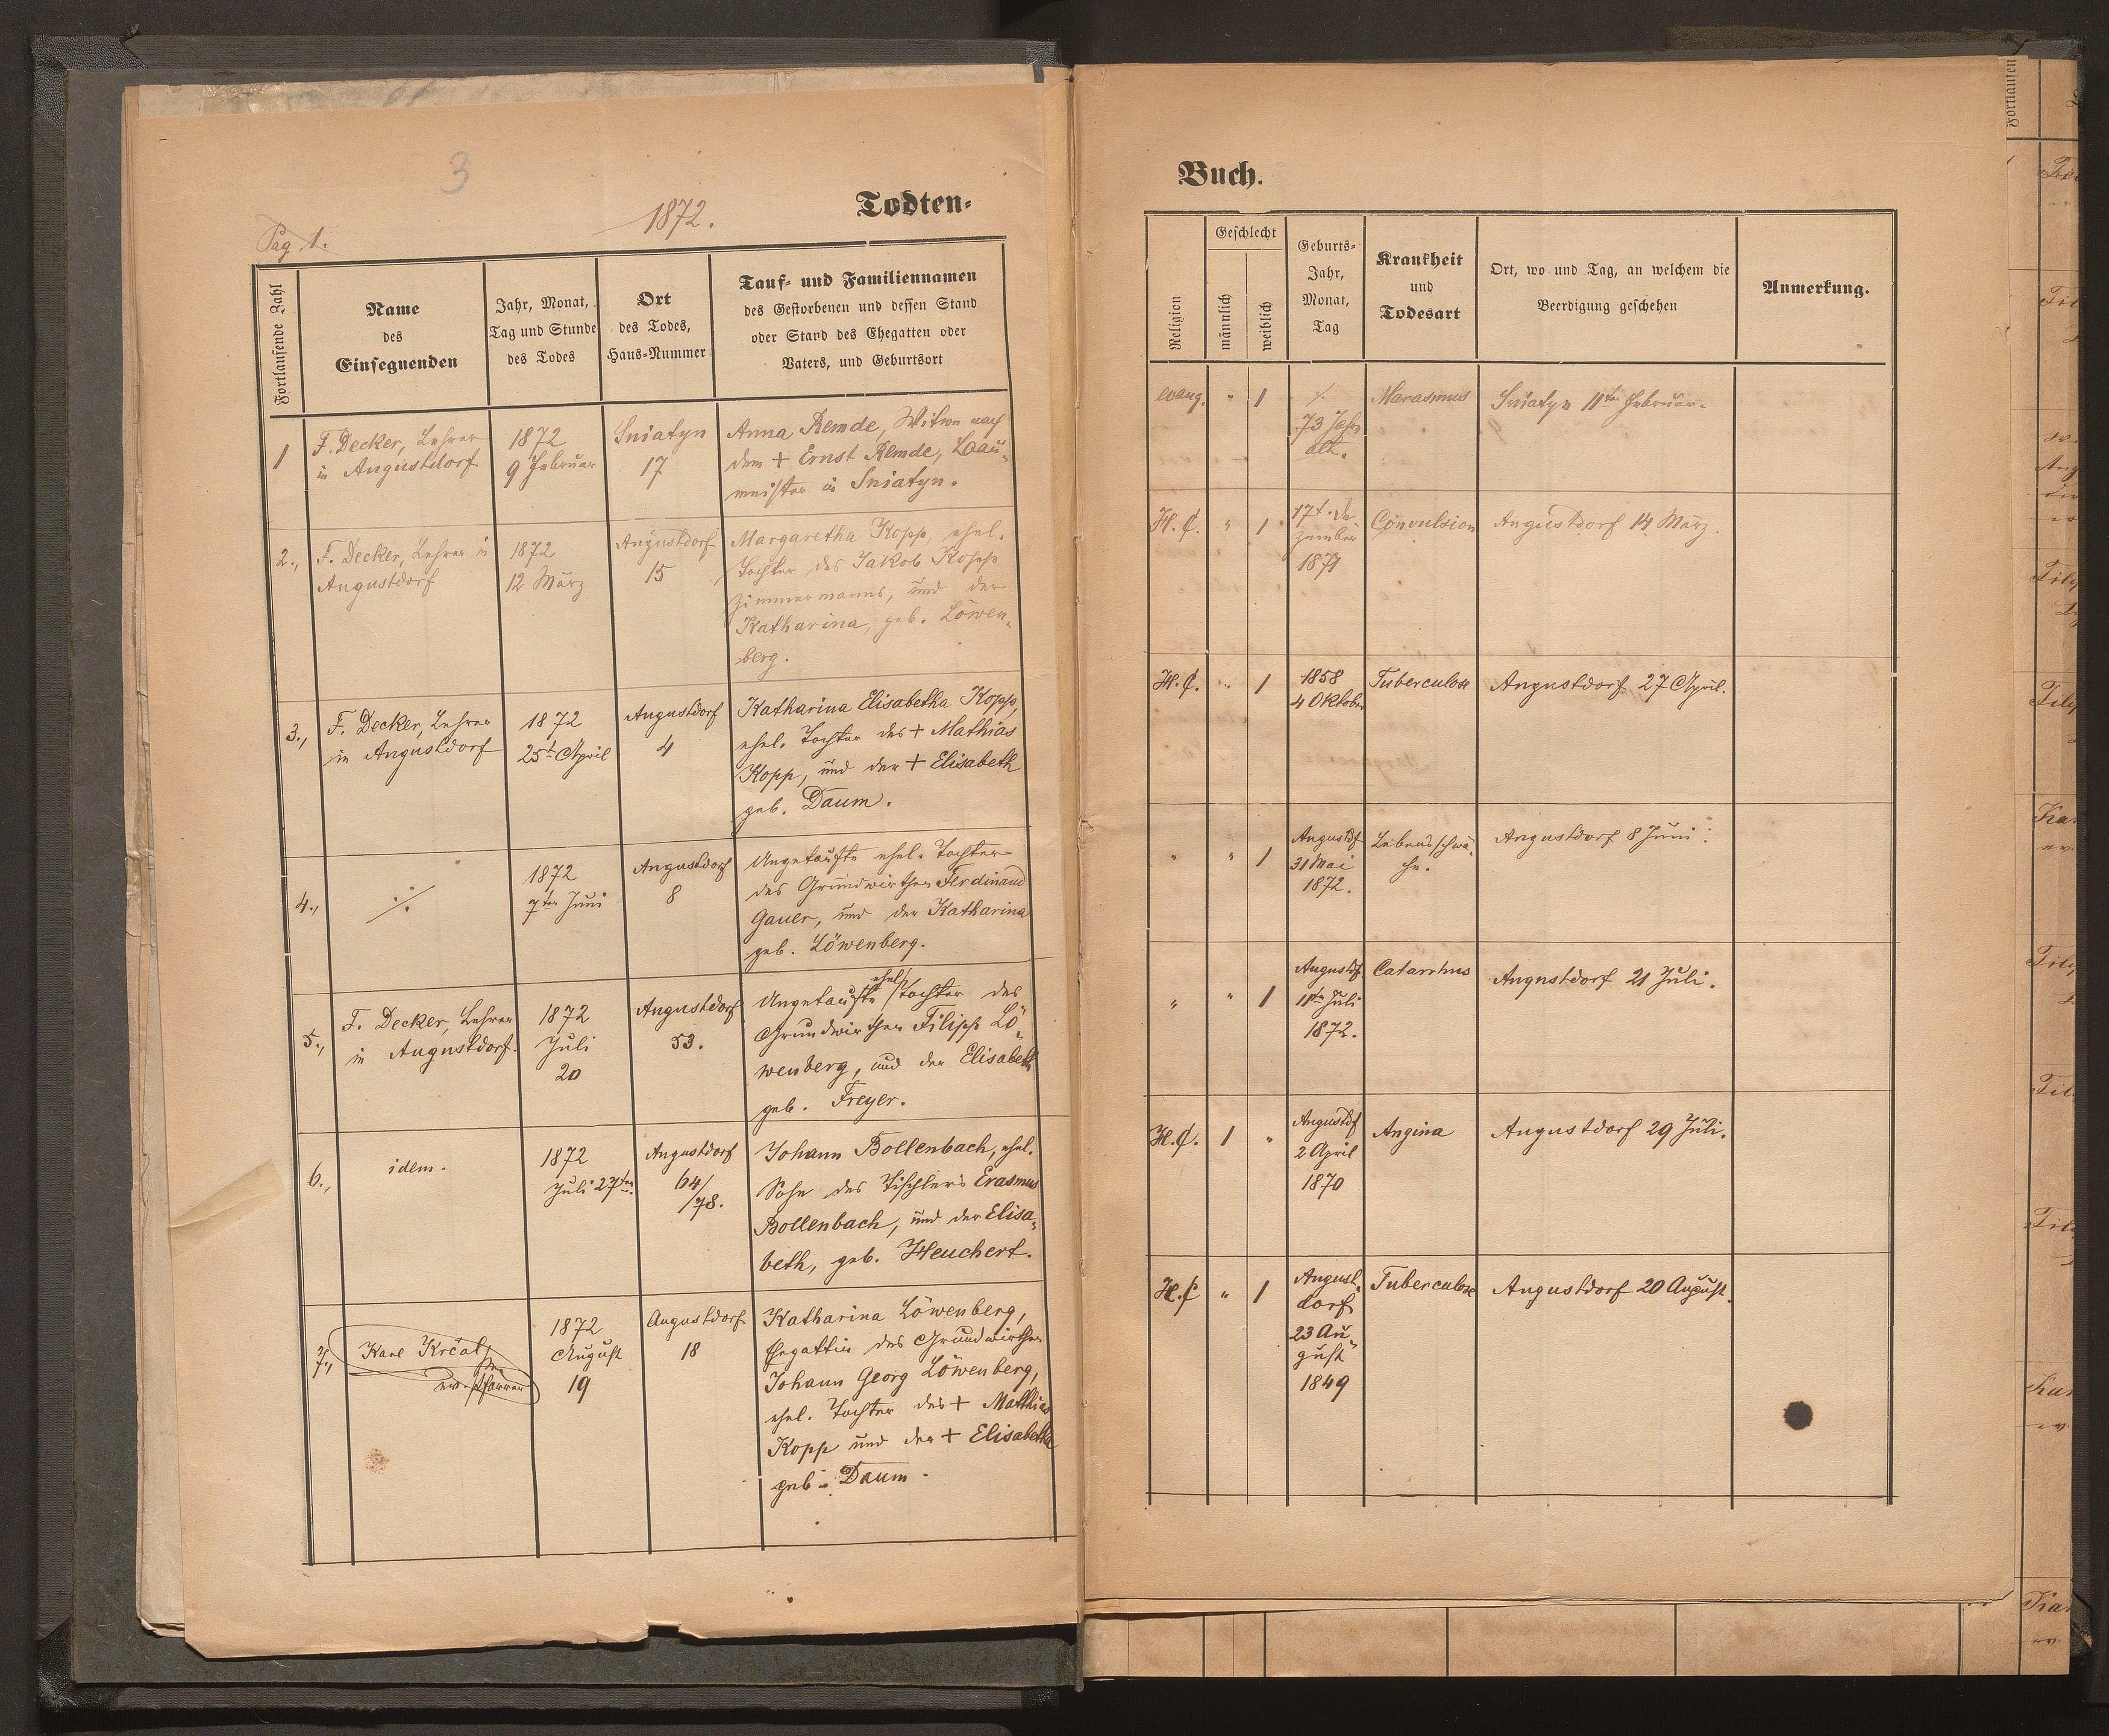 3
Pag 1.
1872.
Todten-
Fortlaufende Zahl
Name
des
Einsegnenden
Jahr, Monat,
Tag und Stunde
des Todes
Ort
des Todes,
Haus-Nummer
Tauf- und Familiennamen
des Gestorbenen und dessen Stand
oder Stand des Ehegatten oder
Vaters, und Geburtsort
1
F. Decker, Lehrer
in Augustdorf
1872
9 Februar
Sniatyn
17
Anna Remde, Witwe nach
dem + Ernst Remde, Bau-
meister in Sniatyn.
2.,
F. Decker, Lehrer in
Augustdorf
1872
12 März
Augustdorf
15
Margaretha Kopp, ehel.
Tochter des Jakob Kopp
Zimmermanns, und der
Katharina, geb. Löwen-
berg.
3.,
F. Decker, Lehrer
in Augustdorf
1872
25t April
Augustdorf
4
Katharina Elisabetha Kopp,
ehel. Tochter des + Mathias
Kopp, und der + Elisabeth
geb. Daum.
4.,
./.
1872
7ten Juni
Augustdorf
8
Ungetaufte ehel. Tochter
des Grundwirthen Ferdinand
Gauer, und der Katharina
geb. Löwenberg.
5.,
F. Decker, Lehrer
in Augustdorf.
1872
Juli
20
Augustdorf
53.
Ungetaufte ehel. Tochter des
Grundwirthen Filipp Lö-
wenberg, und der Elisabeth
geb. Freyer.
6.,
idem.
1872
Juli 27ten
Augustdorf
64/
/78.
Johann Bollenbach, ehel.
Sohn des Tischlers Erasmus
Bollenbach, und der Elisa-
beth, geb. Heuchert.
7.,
Karl Krčal,
ev. Pfarrer
1872
August
19
Augustdorf
18
Katharina Löwenberg,
Ehegattin des Grundwirthen
Johann Georg Löwenberg,
ehel. Tochter des + Mathias
Kopp und der + Elisabetha
geb. Daum.
Buch.
Religion
Geschlecht
männlich
weiblich
Geburts-
Jahr,
Monat,
Tag
Krankheit
und
Todesart
Ort, wo und Tag, an welchem die
Beerdigung geschehen
Anmerkung.
evang.
"
1
./.
73 Jahr
alt.
Marasmus
Sniatyn 11ten Februar.
H. C.
"
1
17t. De-
zember
1871
Convulsion
Augustdorf 14 März.
H. C.
"
1
1858
4 Oktober
Tuberculose
Augustdorf 27 April.
"
"
1
Augustdf
31 Mai
1872.
Lebensschwä-
che.
Augustdorf 8 Juni.
"
"
1
Augustdf.
11ten Juli
1872.
Catarrhus
Augustdorf 21 Juli.
H. C.
1
"
Augustdf
2 April
1870
Angina
Augustdorf 29 Juli.
H. C
"
1
August-
dorf
23 Au-
gust
1849
Tuberculose
Augustdorf 20 August.
Fortlaufen